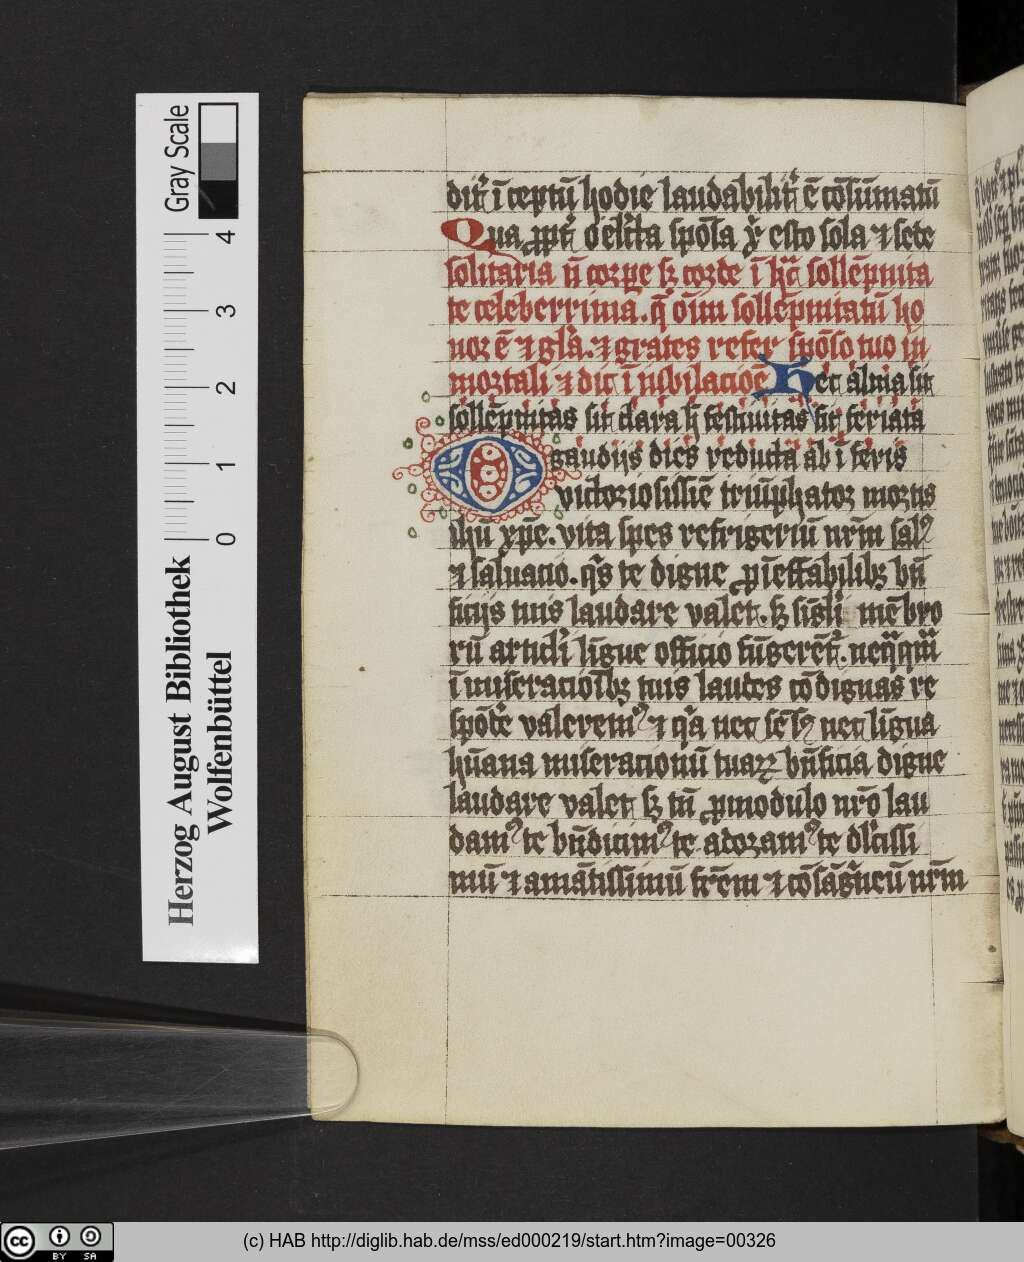 Gray Scale
4
3
2
1
0
Herzog August Bibliothek
Wolfenbüttel
dit᷑ ī ceptū hodie laudabilit᷑ ē cōsūmatū
Qua ꝓpt᷑ o elc̄ta spōsa xp̄i esto sola ⁊ sete
solitaria nō corpe sꝫ corde ī hac sollēpnita
te celeberrima. q̄ oīm sollēpnitatū ho
nor ē ⁊ glā. ⁊ grates refer spōso tuo in
mortali ⁊ dic ī iubilacōe Hec alma sit
sollēpnitas sit clara h̄ festiuitas sit feriata
gaudijs dies reducta ab ī feris
O victoriosissiē triūphator mortis
ihū xp̄e. vita spes refrigeriū nrm̄ salꝰ
⁊ saluatio. qs̄ te digne ꝓ īeffabilibꝫ bn̄
ficijs tuis laudare valet. sꝫ si sīgli mēbro
rū articli līgue officio fūgerēt᷑. neq̄q̄
ī miseratiōibꝫ tuis laudes cōdignas re
spōde valeremꝰ ⁊ qa nec sēsꝰ nec līgua
hūana miserationū tuaꝝ bn̄ficia digne
laudare valet sꝫ tn̄ ꝓ modulo nrō lau
damꝰ te bn̄dicimꝰ te adoramꝰ te dulcissi
mū ⁊ amātissimū frēm ⁊ cōsāguīeū nrm̄
(c) HAB http://diglib.hab.de/mss/ed000219/start.htm?image=00326
CC BY SA